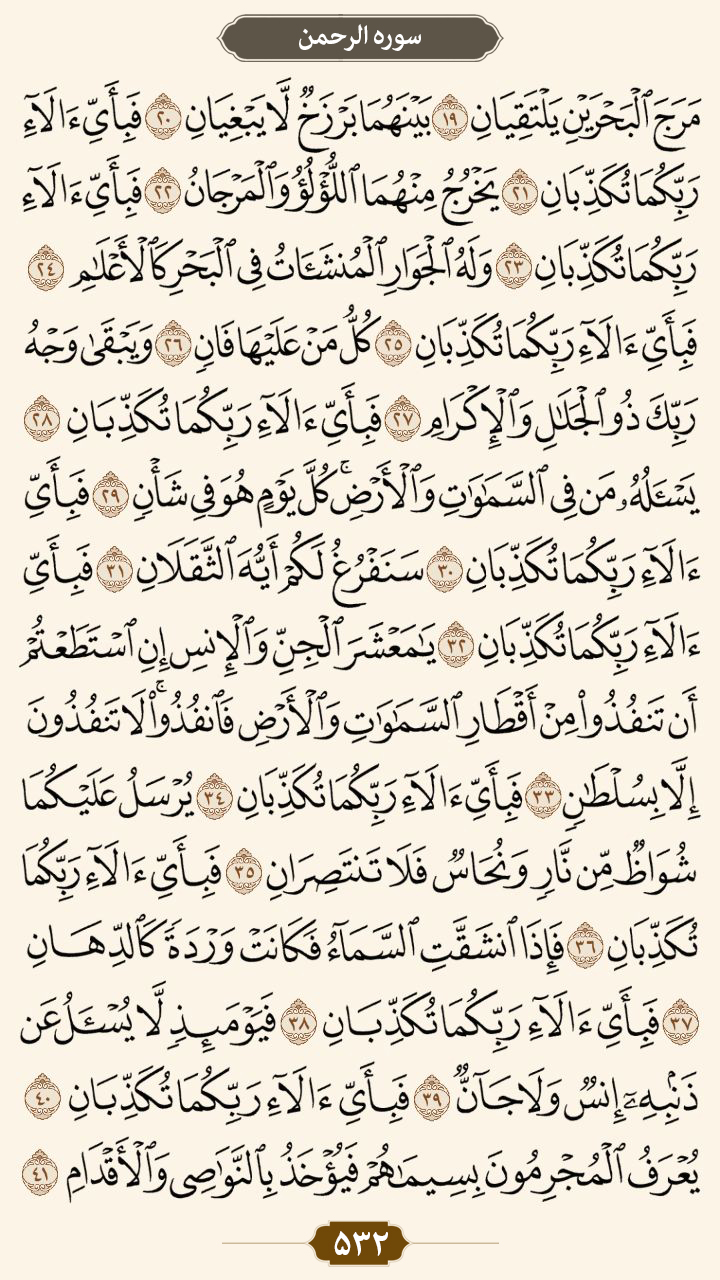 سوره الرحمن
مَرَجَ ٱلْبَحْرَيْنِ يَلْتَقِيَانِ ١٩ بَيْنَهُمَا بَرْزَخٌ لَّا يَبْغِيَانِ ٢٠ فَبِأَىِّ ءَالَآءِ
رَبِّكُمَا تُكَذِّبَانِ ٢١ يَخْرُجُ مِنْهُمَا ٱللُّؤْلُؤُ وَٱلْمَرْجَانُ ٢٢ فَبِأَىِّ ءَالَآءِ
رَبِّكُمَا تُكَذِّبَانِ ٢٣ وَلَهُ ٱلْجَوَارِ ٱلْمُنشَـَٔاتُ فِى ٱلْبَحْرِ كَٱلْأَعْلَـٰمِ ٢٤
فَبِأَىِّ ءَالَآءِ رَبِّكُمَا تُكَذِّبَانِ ٢٥ كُلُّ مَنْ عَلَيْهَا فَانٍ ٢٦ وَيَبْقَىٰ وَجْهُ
رَبِّكَ ذُو ٱلْجَلَـٰلِ وَٱلْإِكْرَامِ ٢٧ فَبِأَىِّ ءَالَآءِ رَبِّكُمَا تُكَذِّبَانِ ٢٨
يَسْـَٔلُهُۥ مَن فِى ٱلسَّمَـٰوَٰتِ وَٱلْأَرْضِ ۚ كُلَّ يَوْمٍ هُوَ فِى شَأْنٍ ٢٩ فَبِأَىِّ
ءَالَآءِ رَبِّكُمَا تُكَذِّبَانِ ٣٠ سَنَفْرُغُ لَكُمْ أَيُّهَ ٱلثَّقَلَانِ ٣١ فَبِأَىِّ
ءَالَآءِ رَبِّكُمَا تُكَذِّبَانِ ٣٢ يَـٰمَعْشَرَ ٱلْجِنِّ وَٱلْإِنسِ إِنِ ٱسْتَطَعْتُمْ
أَن تَنفُذُوا۟ مِنْ أَقْطَارِ ٱلسَّمَـٰوَٰتِ وَٱلْأَرْضِ فَٱنفُذُوا۟ ۚ لَا تَنفُذُونَ
إِلَّا بِسُلْطَـٰنٍ ٣٣ فَبِأَىِّ ءَالَآءِ رَبِّكُمَا تُكَذِّبَانِ ٣٤ يُرْسَلُ عَلَيْكُمَا
شُوَاظٌ مِّن نَّارٍ وَنُحَاسٌ فَلَا تَنتَصِرَانِ ٣٥ فَبِأَىِّ ءَالَآءِ رَبِّكُمَا
تُكَذِّبَانِ ٣٦ فَإِذَا ٱنشَقَّتِ ٱلسَّمَآءُ فَكَانَتْ وَرْدَةً كَٱلدِّهَانِ
٣٧ فَبِأَىِّ ءَالَآءِ رَبِّكُمَا تُكَذِّبَانِ ٣٨ فَيَوْمَئِذٍ لَّا يُسْـَٔلُ عَن
ذَنۢبِهِۦٓ إِنسٌ وَلَا جَآنٌّ ٣٩ فَبِأَىِّ ءَالَآءِ رَبِّكُمَا تُكَذِّبَانِ ٤٠
يُعْرَفُ ٱلْمُجْرِمُونَ بِسِيمَـٰهُمْ فَيُؤْخَذُ بِٱلنَّوَٰصِى وَٱلْأَقْدَامِ ٤١
۵۳۲